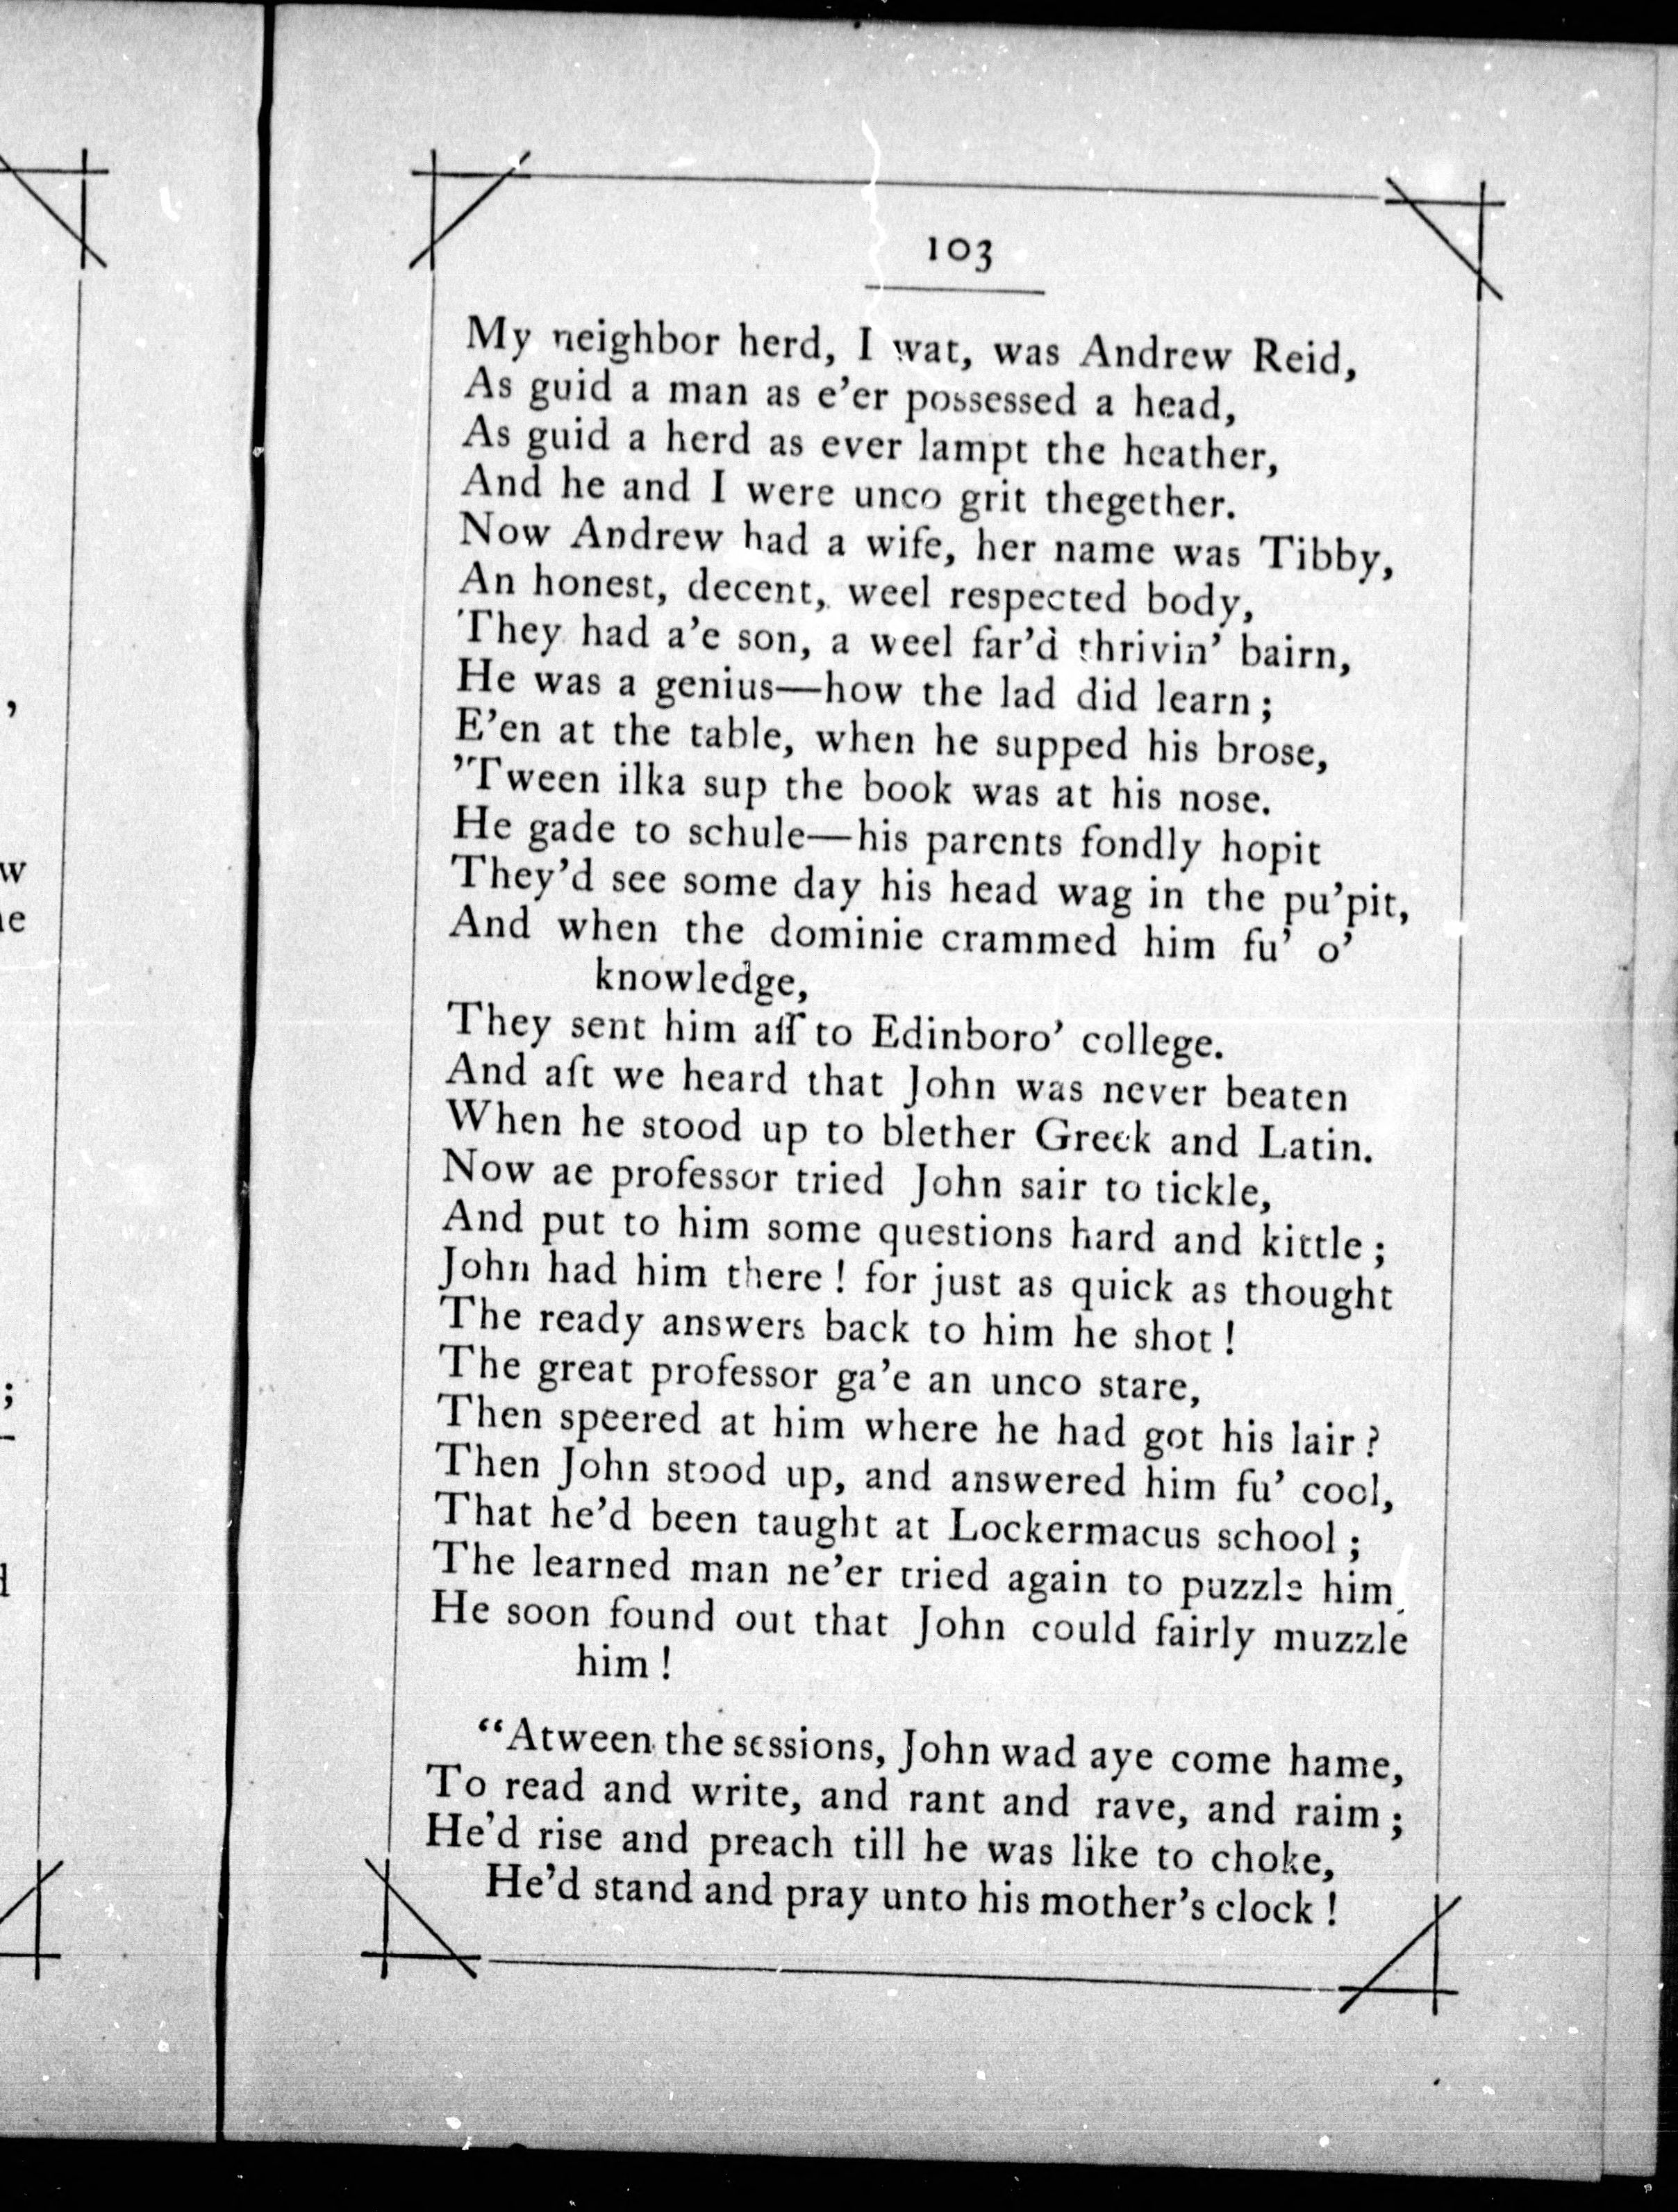 103
My neighbor herd, I wat, was Andrew Reid,
As guid a man as e'er possessed a head,
As guid a herd as ever lampt the heather,
And he and I were unco grit thegether.
Now Andrew had a wife, her name was Tibby,
An honest, decent, weel respected body,
They had a'e son, a weel far'd thrivin' bairn,
He was a genius—how the lad did learn;
E'en at the table, when he supped his brose,
'Tween ilka sup the book was at his nose.
He gade to schule—his parents fondly hopit
They'd see some day his head wag in the pu'pit,
And when the dominie crammed him fu' o'
knowledge,
They sent him aff to Edinboro' college.
And aft we heard that John was never beaten
When he stood up to blether Greek and Latin.
Now ae professor tried John sair to tickle,
And put to him some questions hard and kittle;
John had him there! for just as quick as thought
The ready answers back to him he shot!
The great professor ga'e an unco stare,
Then speered at him where he had got his lair?
Then John stood up, and answered him fu' cool,
That he'd been taught at Lockermacus school;
The learned man ne'er tried again to puzzle him,
He soon found out that John could fairly muzzle
him!
"Atween the sessions, John wad aye come hame,
To read and write, and rant and rave, and raim;
He'd rise and preach till he was like to choke,
He'd stand and pray unto his mother's clock!